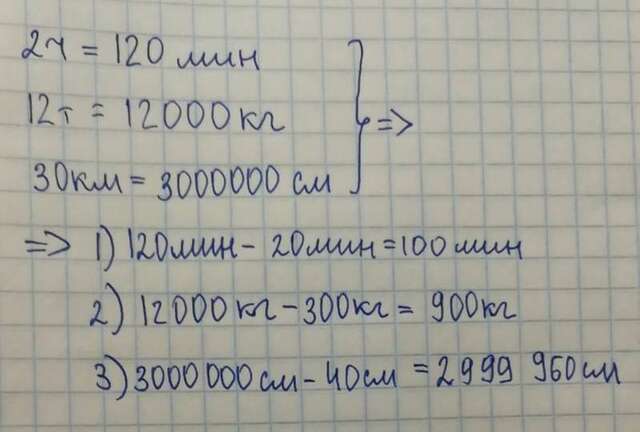 2ч = 120 мин
12т = 12000 кг
30км = 3000000 см
=>
=> 1) 120мин - 20мин = 100 мин
2) 12000 кг - 300кг = 900кг
3) 3000 000 см - 40см = 2 999 960 см